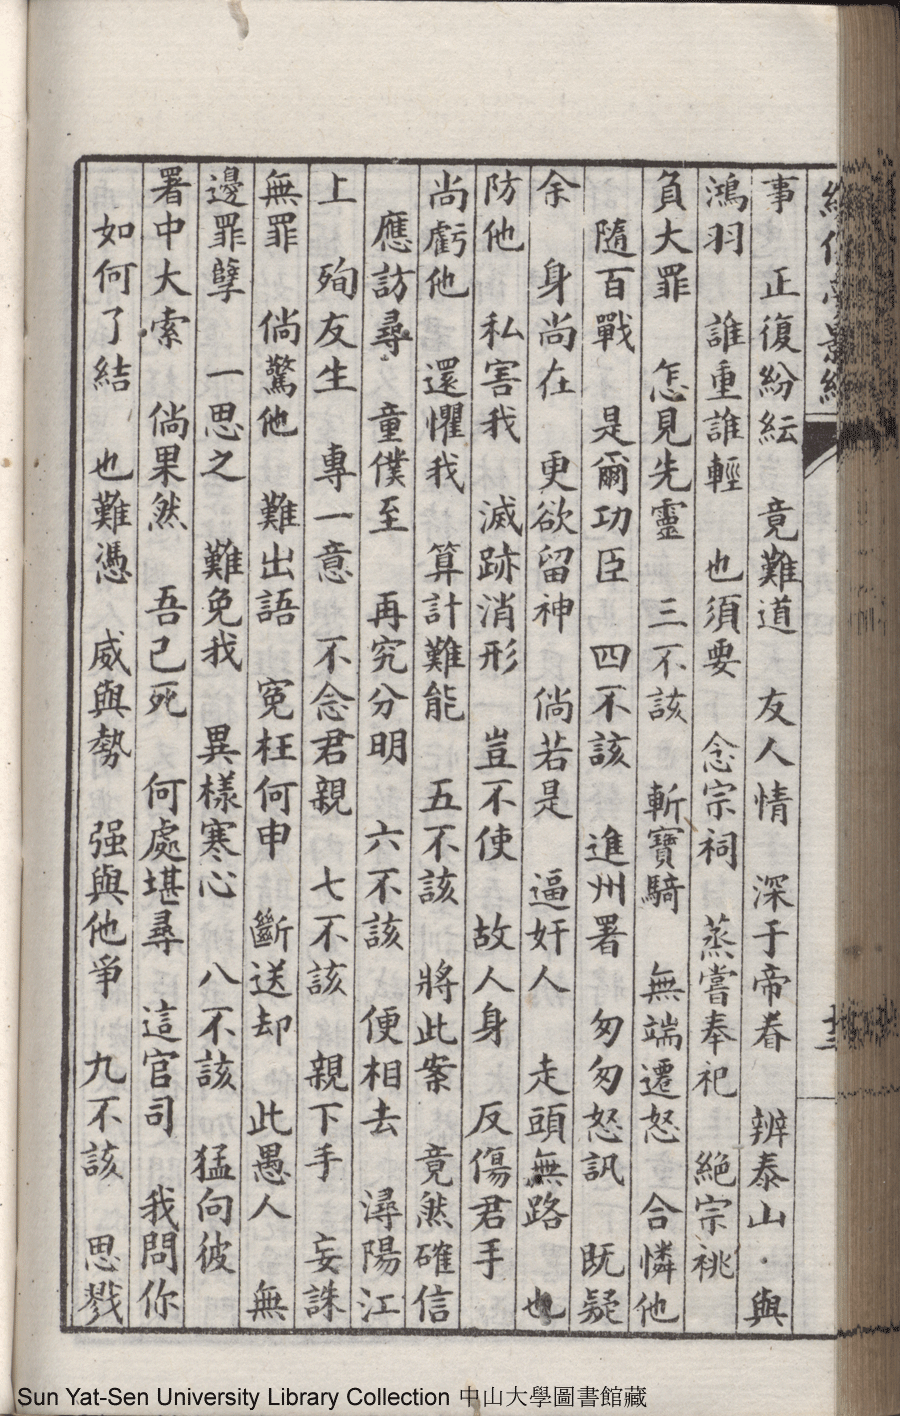 事 正復紛紜 竟難道 友人情 深于帝眷 辨泰山·與
鴻羽 誰重誰輕 也須要 念宗祠 蒸嘗奉祀 絕宗祧
負大罪 怎見先靈 三不該 斬寶騎 無端遷怒 合憐他
隨百戰 是爾功臣 四不該 進州署 匆匆怒訊 既疑
余 身尚在 更欲留神 倘若是 逼奸人 走頭無路 也
防他 私害我 滅跡消形 豈不使 故人身 反傷君手
尚虧他 還懼我 算計難能 五不該 將此案 竟然確信
應訪尋 童僕至 再究分明 六不該 便相去 潯陽江
上 殉友生 專一意 不念君親 七不該 親下手 妄誅
無罪 倘驚他 難出語 冤枉何申 斷送却 此愚人 無
邊罪孽 一思之 難免我 異樣寒心 八不該 猛向彼
署中大索 倘果然 吾已死 何處堪尋 這官司 我問你
如何了結 也難憑 威與勢 强與他爭 九不該 思戮
Sun Yat-Sen University Library Collection 中山大學圖書館藏